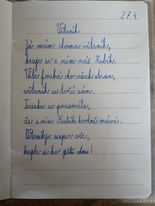 27.4.
Větrník
Já mám doma větrník,
hraje si s ním náš Kubík.
Vítr fouká do všech stran,
větrník se točí sám.
Terka se pousmála,
že s ním Kubík hodně mává.
Větrník je super věc,
kupte si ho ještě dnes!